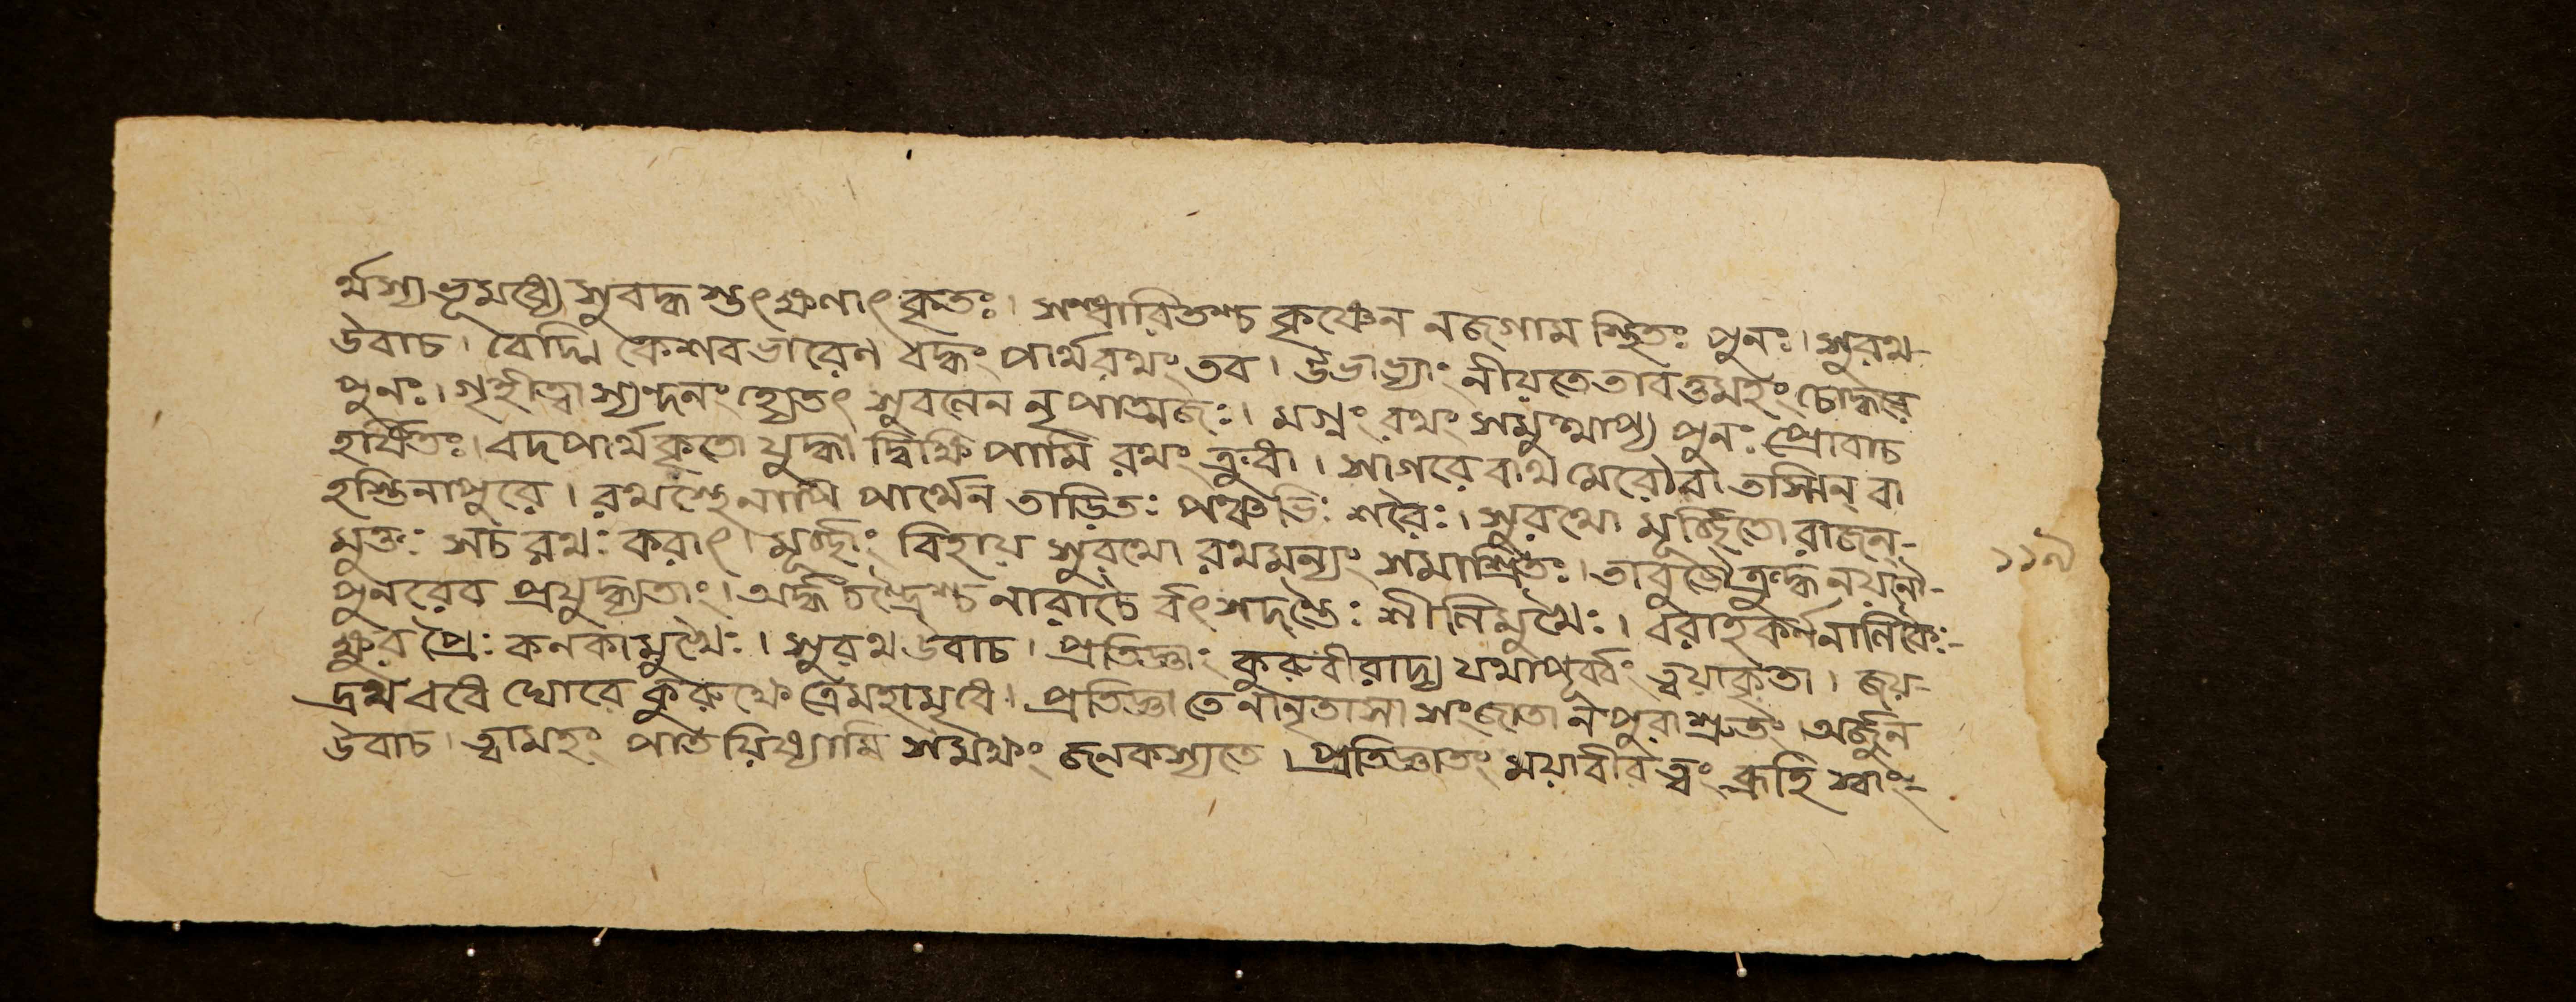 র্থস্য ভূমধ্যে সুবদ্ধ স্তৎক্ষণাৎ কৃতঃ। সম্প্রাবিতশ্চ কৃষ্ণেন নজগাম স্থিতঃ পুনঃ। সুরথ-
উবাচ। বৈদ্মি কেশবভারেণ বদ্ধং পার্থরথং তব। উভাভ্যাং নীয়তে তাবত্তমহং চোদ্ধরে
পুনঃ। গৃহীত্বা স্যন্দনং হ্যেতৎ সুবলেন নৃপাত্মজঃ। মগ্নং রথং সমুত্থাপ্য পুনঃ প্রোবাচ
হর্ষিতঃ। বদপার্থ কৃতো যুদ্ধা দ্বিক্ষিপামি রথং ত্রুবী। সাগরে বাথ মেরৌবা তস্মিন্ বা
হস্তিনাপুরে। রথস্থেনাপি পার্থেন তাড়িতঃ পঞ্চভিঃ শরৈঃ। সুরথো মূর্চ্ছিতো রাজন্-
মুক্তঃ সচ রথঃ করাৎ। মূর্চ্ছাং বিহায় সুরথো রথমন্যং সমাশ্রিতঃ। তাবুভৌ ক্রুদ্ধ নয়নৌ-
পুনরেব প্রযুদ্ধ্যতাং। অর্দ্ধচন্দ্রৈশ্চ নারাচৈ র্বৎসদন্তৈঃ শীলিমুখৈঃ। বরাহকর্ণনালিকৈঃ-
ক্ষুরপ্রৈঃ কনকামুখৈঃ। সুরথ উবাচ। প্রতিজ্ঞাং কুরুবীরাদ্য যথাপূর্ব্বং ত্বয়াকৃতা। জয়-
দ্রথ বধে ঘোরে কুরুক্ষেত্রেমহামৃধে। প্রতিজ্ঞা তে নানৃতাসা সংজাতা নপুরাশ্রুতং। অর্জ্জুন
উবাচ। ত্বামহং পাতয়িষ্যামি সমক্ষং জনকস্যতে। প্রতিজ্ঞাতং ময়াবীর ত্বং ব্রূহি স্বাং-
১১৯